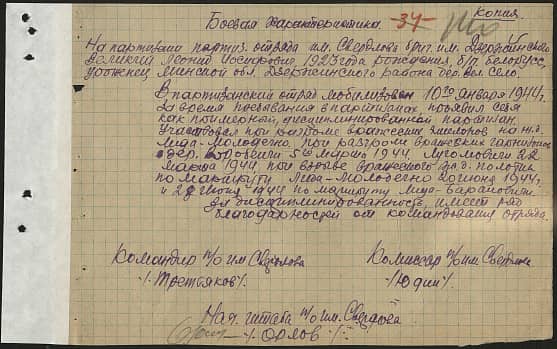 Копия.
Боевая характеристика. -37-
На партизана партиз. отряда им. Свердлова бриг. им. Дзержинского
Великий Леонид Иосифович, 1923 года рождения, б/п, белорусс,
уроженец Минской обл. Дзержинского района дер. Вел. Село.
В партизанский отряд мобилизован 10го января 1944 г.
За время пребывания в партизанах проявил себя
как примерный, дисциплинированный партизан.
Участвовал при разгроме вражеских эшелонов на ж.д.
Лида-Молодечно, при разгроме вражеских гарнизонов
в дер. 5го 1944,
1944 при взрыве ж.д. полотна
по маршруту Лида-Молодечно 20 июня 1944,
и 28 июня 1944 по маршруту Лида-Барановичи.
За дисциплинированность, имеет ряд
благодарностей от командования отряда.
Командир п/о им. Свердлова Комиссар п/о им. Свердлова
/Третьяков/ /Юдин/
Нач. штаба п/о им. Свердлова
/Орлов/